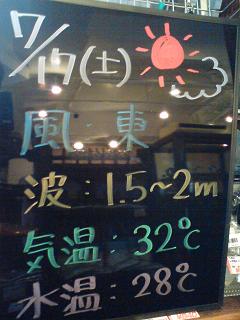 7/17(土)
風:東
波:1.5~2m
気温:32℃
水温:28℃